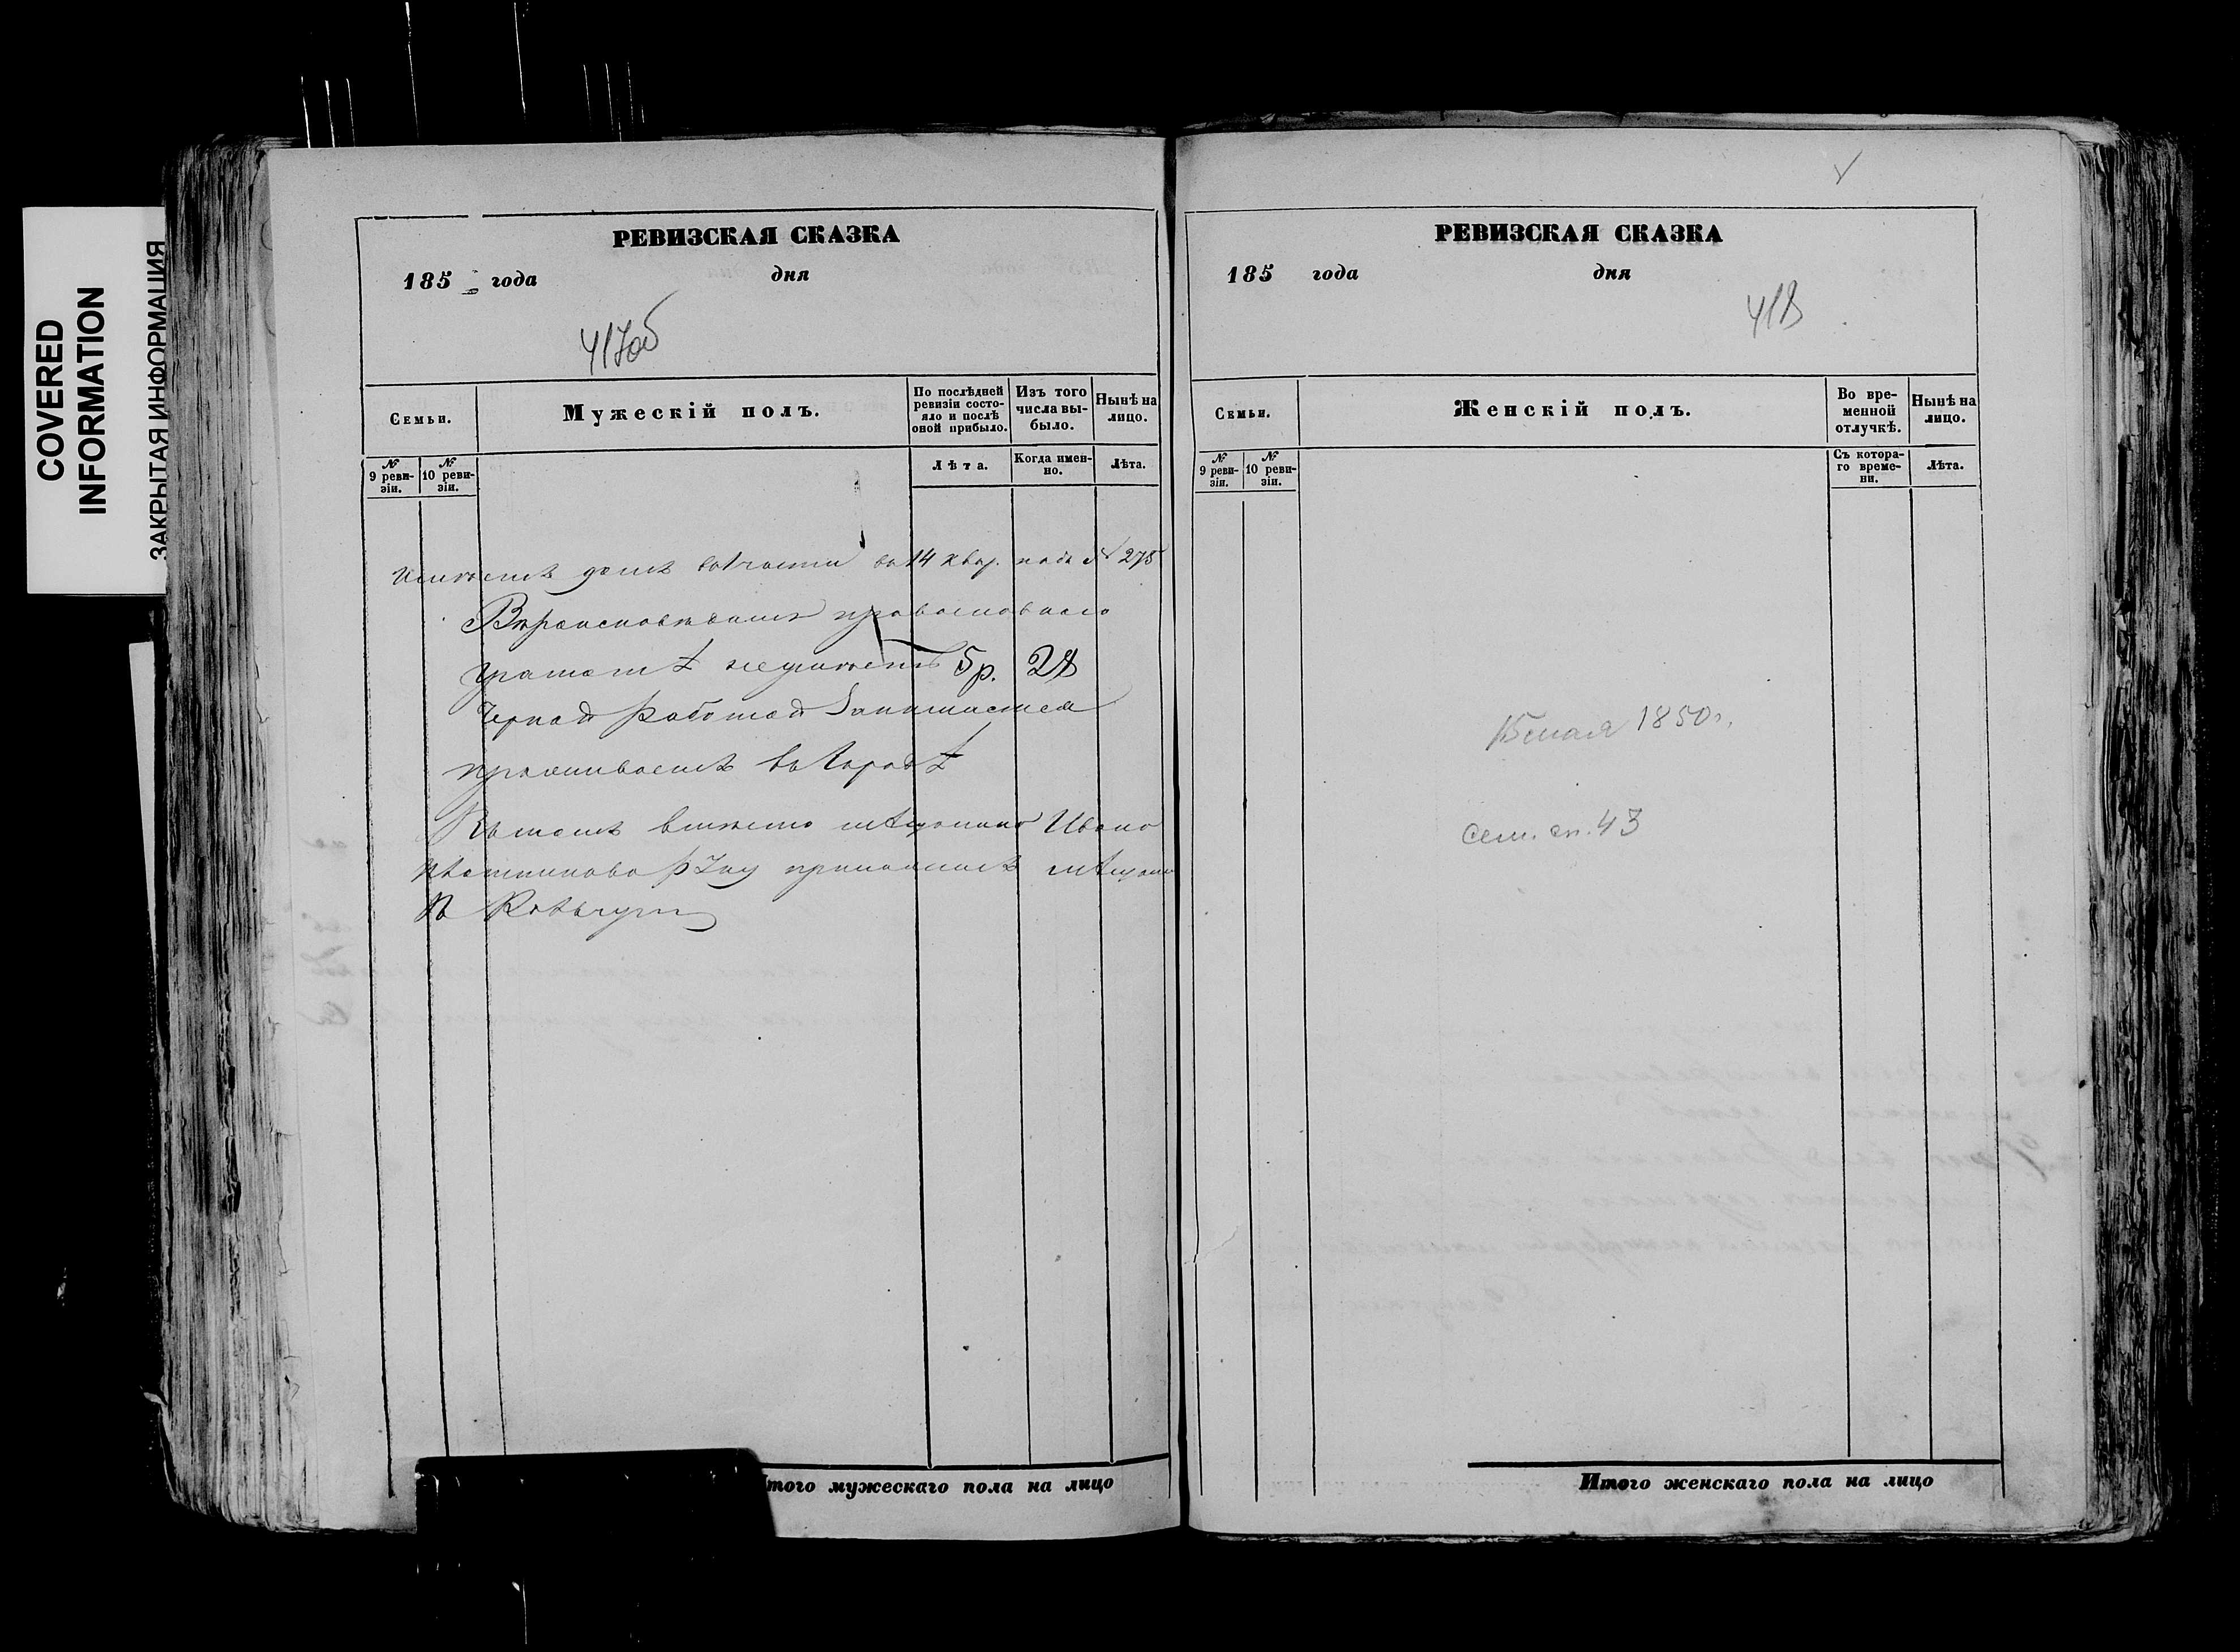 COVERED
INFORMATION
ЗАКРЫТАЯ ИНФОРМАЦИЯ
РЕВИЗСКАЯ СКАЗКА
185 года дня
417об
Семьи.
Мужескій полъ.
По послѣдней ревизіи состояло и послѣ оной прибыло.
Изъ того числа выбыло.
Нынѣ на лицо.
№ 9 ревизіи.
№ 10 ревизіи.
Лѣта.
Когда именно.
Лѣта.
имѣетъ домъ въ 1 части въ 14 квар. подъ № 275
Вѣроисповѣданія православнаго
грамотѣ неумѣетъ 5 р. 28
Черной работой Занимается
проживаетъ въ городѣ
мѣщанина Ивана
руку приложилъ мѣщанин
того мужескаго пола на лицо
РЕВИЗСКАЯ СКАЗКА
185 года дня
418
Семьи.
Женскій полъ.
Во временной отлучкѣ.
Нынѣ на лицо.
№ 9 ревизіи.
№ 10 ревизіи.
Съ котораго времени.
Лѣта.
15 мая 1850 г.
Сем. сп. 43
Итого женскаго пола на лицо